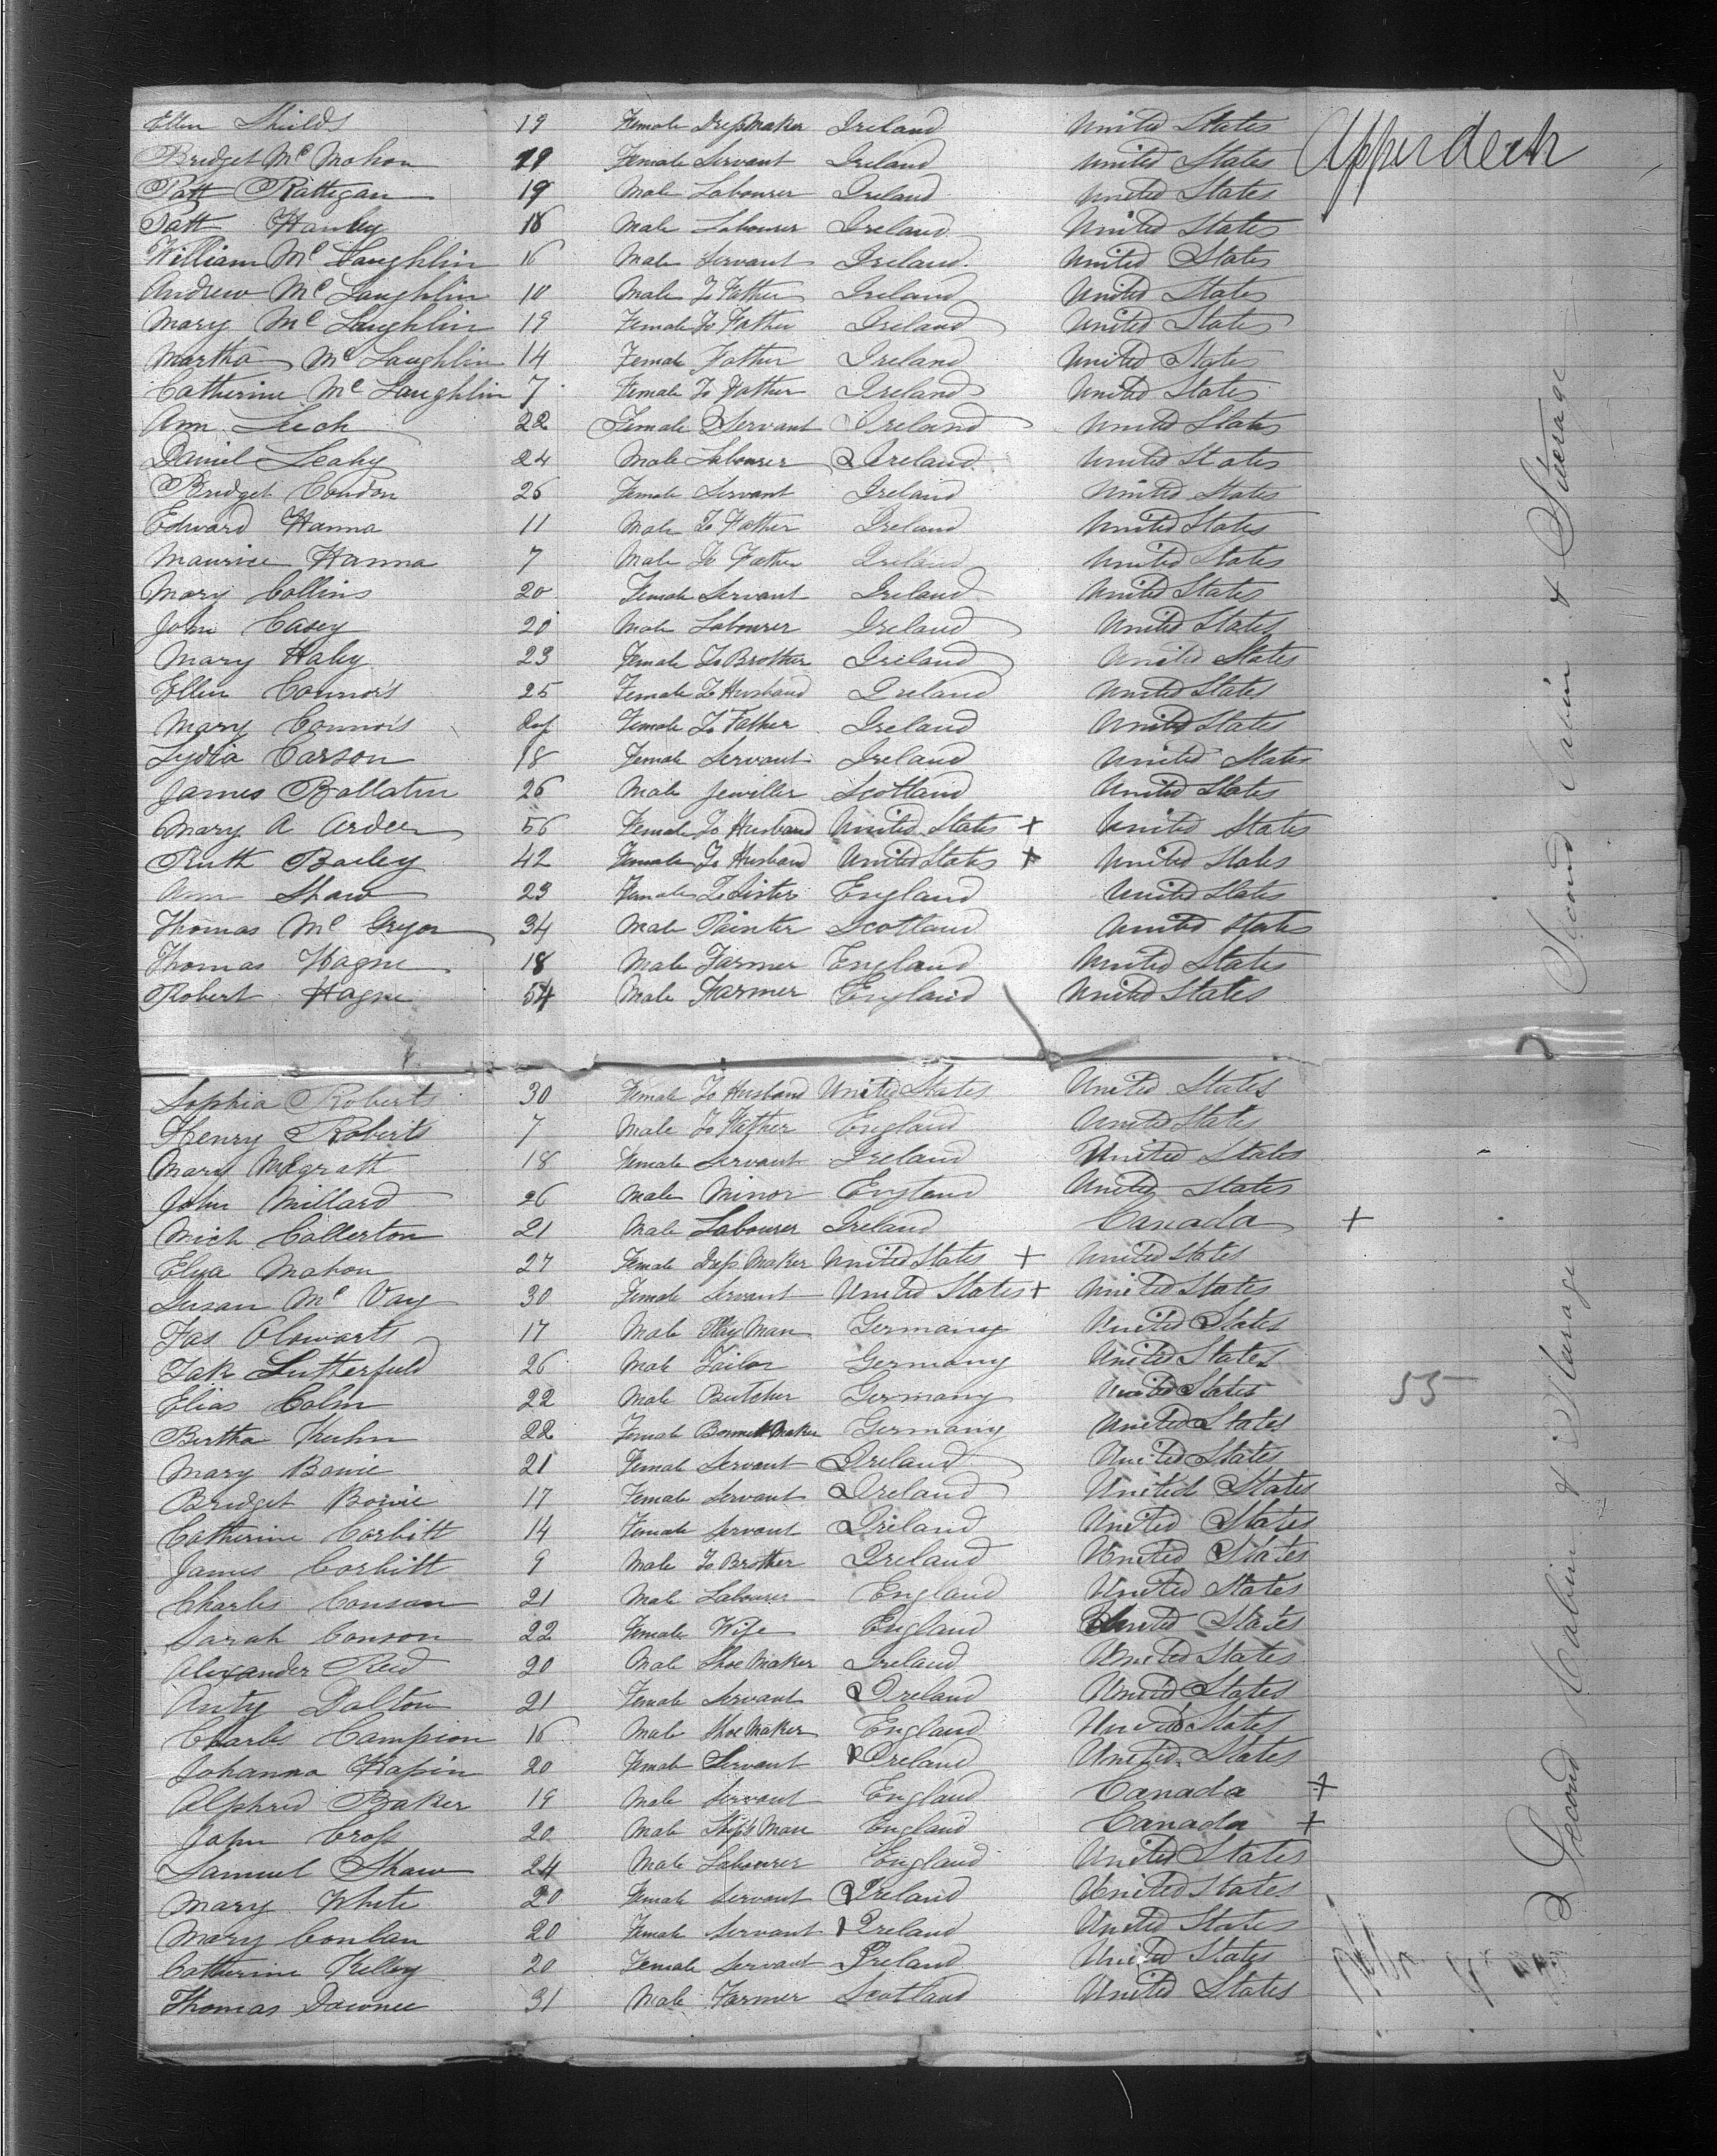 Ellen Shields 19 Female Dressmaker Ireland United States
Bridget Mc Mahon 19 Female Servant Ireland United States Upperdeck
Patt Rattigan 19 Male Labourer Ireland United States
Patt Hanley 18 Male Labourer Ireland United States
William Mc Laughlin 16 Male Servant Ireland United States
Andrew Mc Laughlin 10 Male To Father Ireland United States
Mary Mc Laughlin 19 Female To Father Ireland United States
Martha Mc Laughlin 14 Female Father Ireland United States
Catherine Mc Laughlin 7 Female To Father Ireland United States
Ann Leech 22 Female Servant Ireland United States
Daniel Leahy 24 Male Labourer Ireland United States
Bridget Condon 26 Female Servant Ireland United States
Edward Hanna 11 Male To Father Ireland United States
Maurice Hanna 7 Male To Father Ireland United States
Mary Collins 20 Female Servant Ireland United States
John Casey 20 Male Labourer Ireland United States
Mary Haley 23 Female To Brother Ireland United States
Ellen Connors 25 Female To Husband Ireland United States
Mary Connors Inf Female To Father Ireland United States
Lydia Carson 18 Female Servant Ireland United States
James Ballatin 26 Male Jeweller Scotland United States
Mary A Arden 56 Female To Husband United States + United States
Ruth Bailey 42 Female To Husband United States + United States
Ann Shaw 23 Female To Sister England United States
Thomas Mc Gregor 34 Male Painter Scotland United States
Thomas Hagne 18 Male Farmer England United States
Robert Hagne 54 Male Farmer England United States
Second Cabin & Steerage
Sophia Roberts 30 Female To Husband United States United States
Henry Roberts 7 Male To Father England United States
Mary McGrath 18 Female Servant Ireland United States
John Millard 26 Male Minor England United States
Mich Collerton 21 Male Labourer Ireland Canada +
Elza Mahon 27 Female Dress Maker United States + United States
Susan Mc Vay 30 Female Servant United States + United States
17 Male Germany United States
26 Male Tailor Germany United States
Elias Colm 22 Male Butcher Germany United States 55
Bertha Kuhn 22 Female Bonnet Maker Germany United States
Mary Bowie 21 Female Servant Ireland United States
Bridget Bowie 17 Female Servant Ireland United States
Catherine Corbitt 14 Female Servant Ireland United States
James Corbitt 9 Male To Brother Ireland United States
Charles Conson 21 Male Labourer England United States
Sarah Conson 22 Female Wife England United States
Alexander Reed 20 Male Shoe Maker Ireland United States
Anty Dalton 21 Female Servant Ireland United States
Charles Campion 16 Male Shoe Maker England United States
Johanna Hapin 20 Female Servant Ireland United States
Alphred Baker 19 Male Servant England Canada +
John Cross 20 Male England Canada +
Samuel Shaw 24 Male Labourer England United States
Mary White 20 Female Servant Ireland United States
Mary Conlan 20 Female Servant Ireland United States
Catherine Kelley 20 Female Servant Ireland United States
Thomas Downee 31 Male Farmer Scotland United States
Second Cabin & Steerage